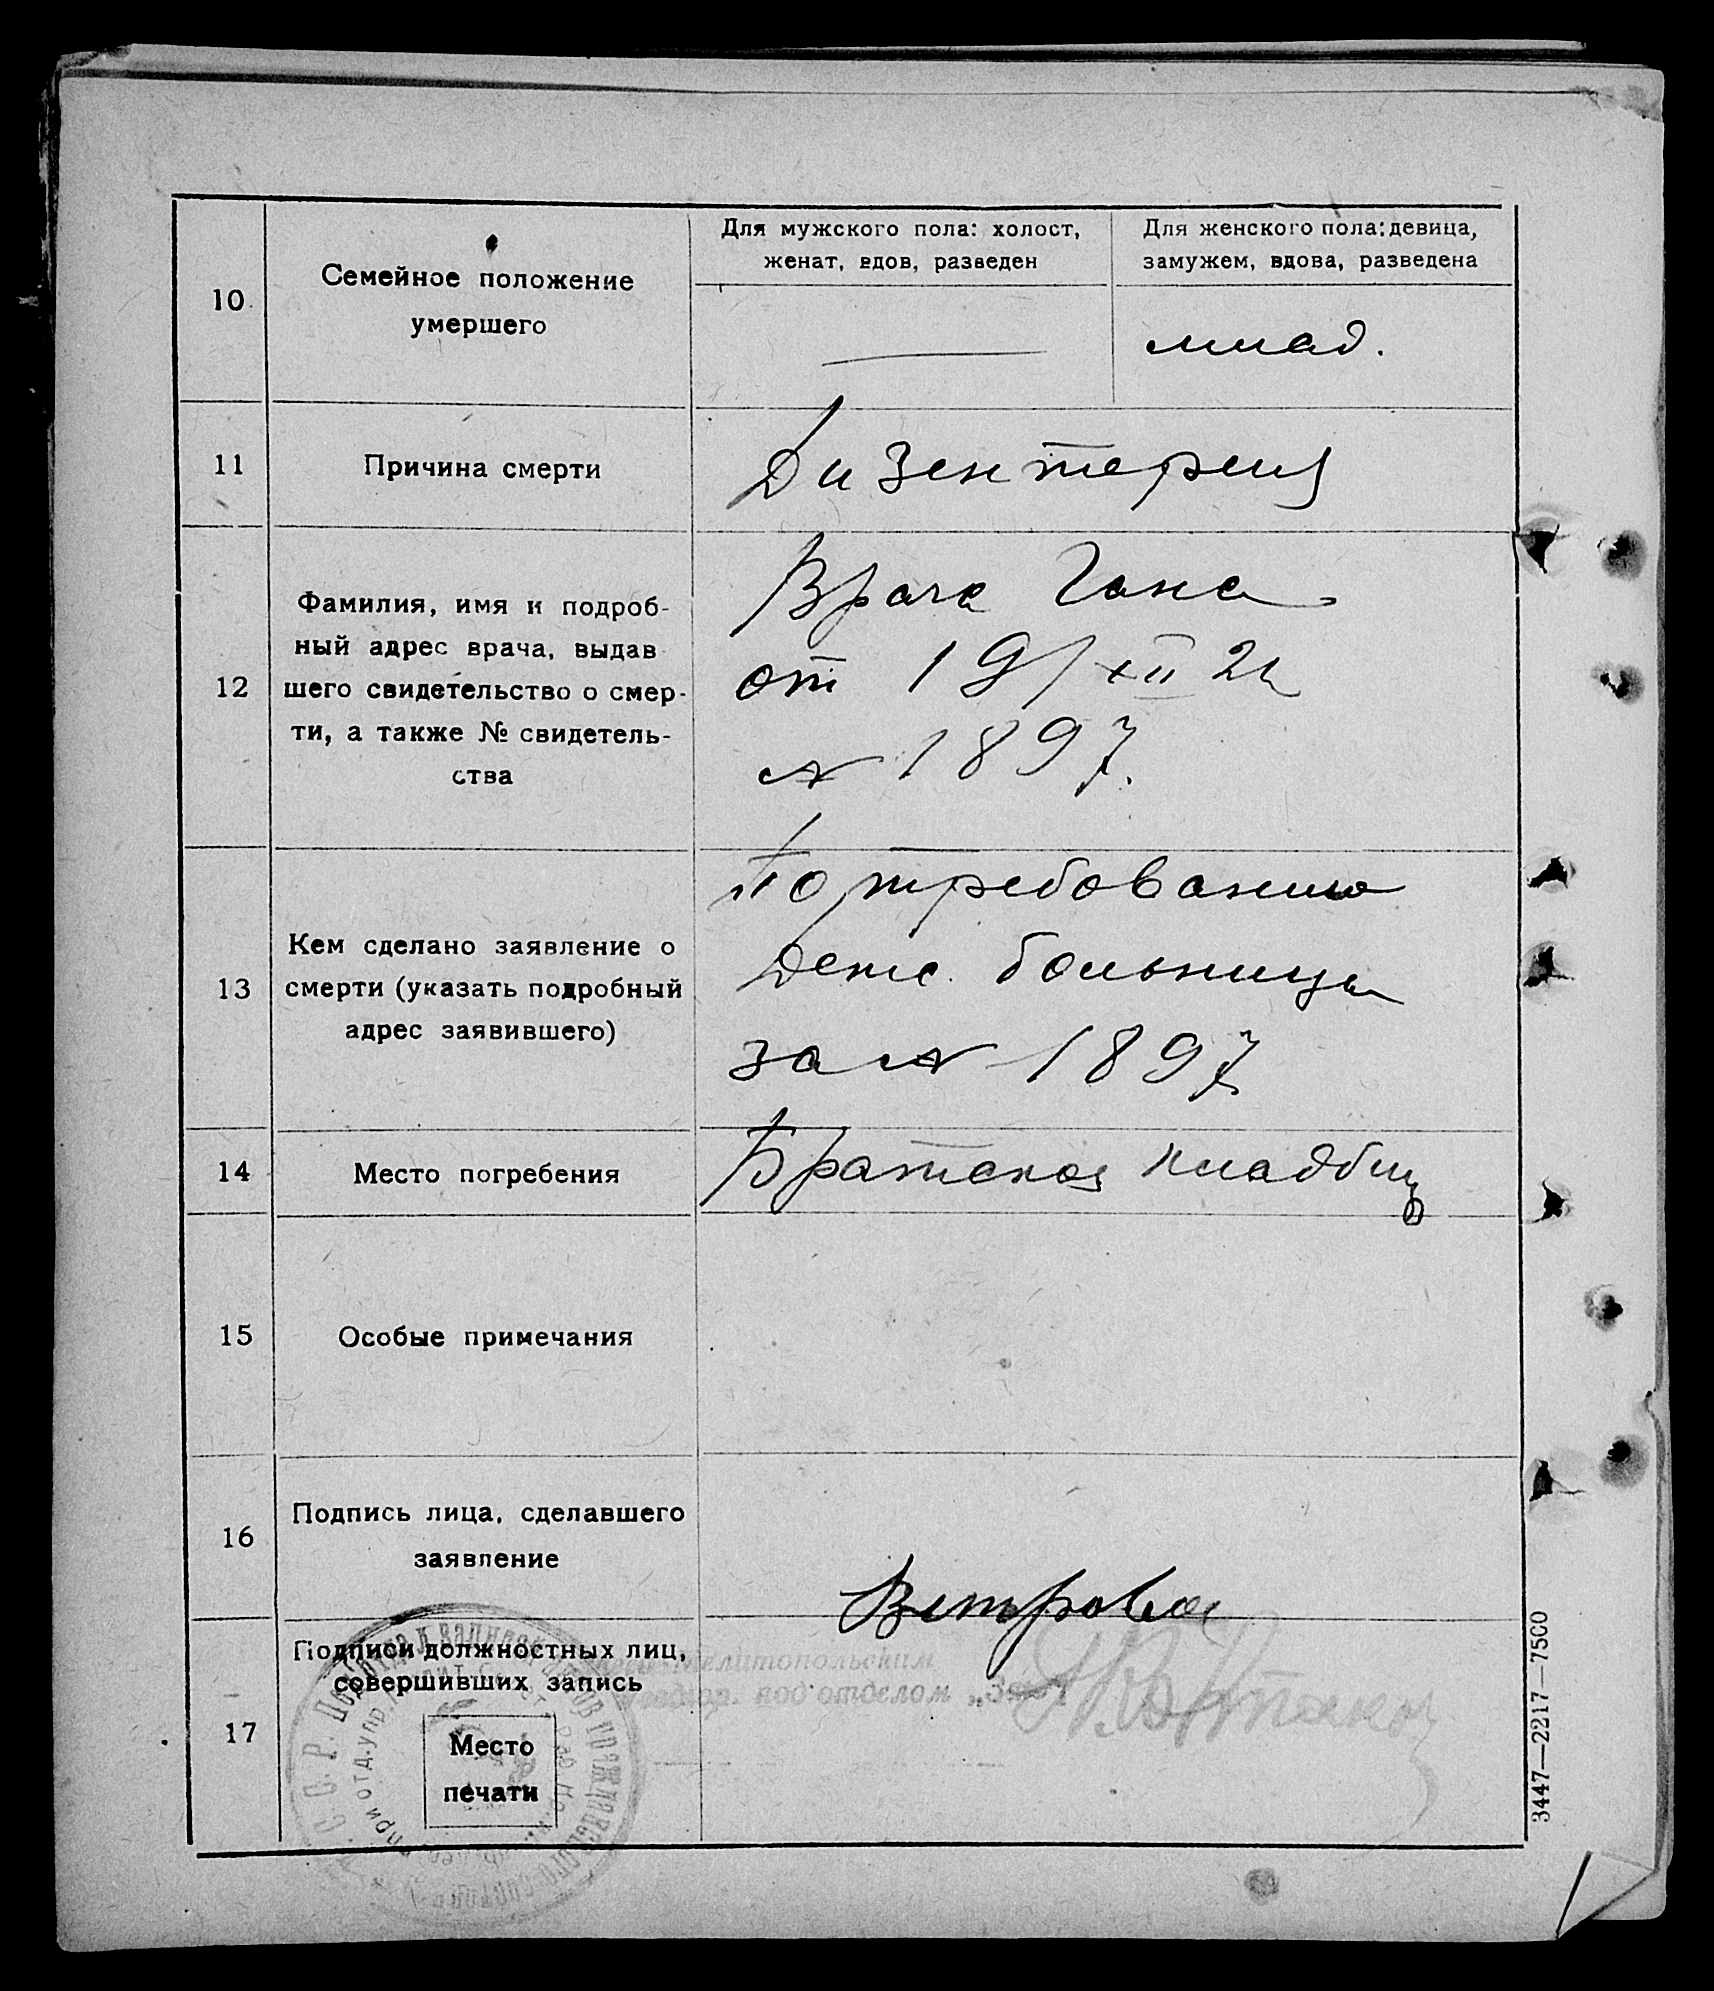 10
Семейное положение
умершего
Для мужского пола: холост,
женат, вдов, разведен
Для женского пола: девица,
замужем, вдова, разведена
млад.
11
Причина смерти
Дизентерия
12
Фамилия, имя и подроб-
ный адрес врача, выдав
шего свидетельство о смер-
ти, а также № свидетель-
ства
Врача Гана
от 19/XII 21
№ 1897.
13
Кем сделано заявление о
смерти (указать подробный
адрес заявившего)
По требованию
Детс. больницы
за № 1897
14
Место погребения
Братское кладбищ
15
Особые примечания
16
Подпись лица, сделавшего
заявление
Ветрова
17
Подписи должностных лиц,
совершивших запись
Место
печати
Мелитопольским
под отделом
3447—2217—7500